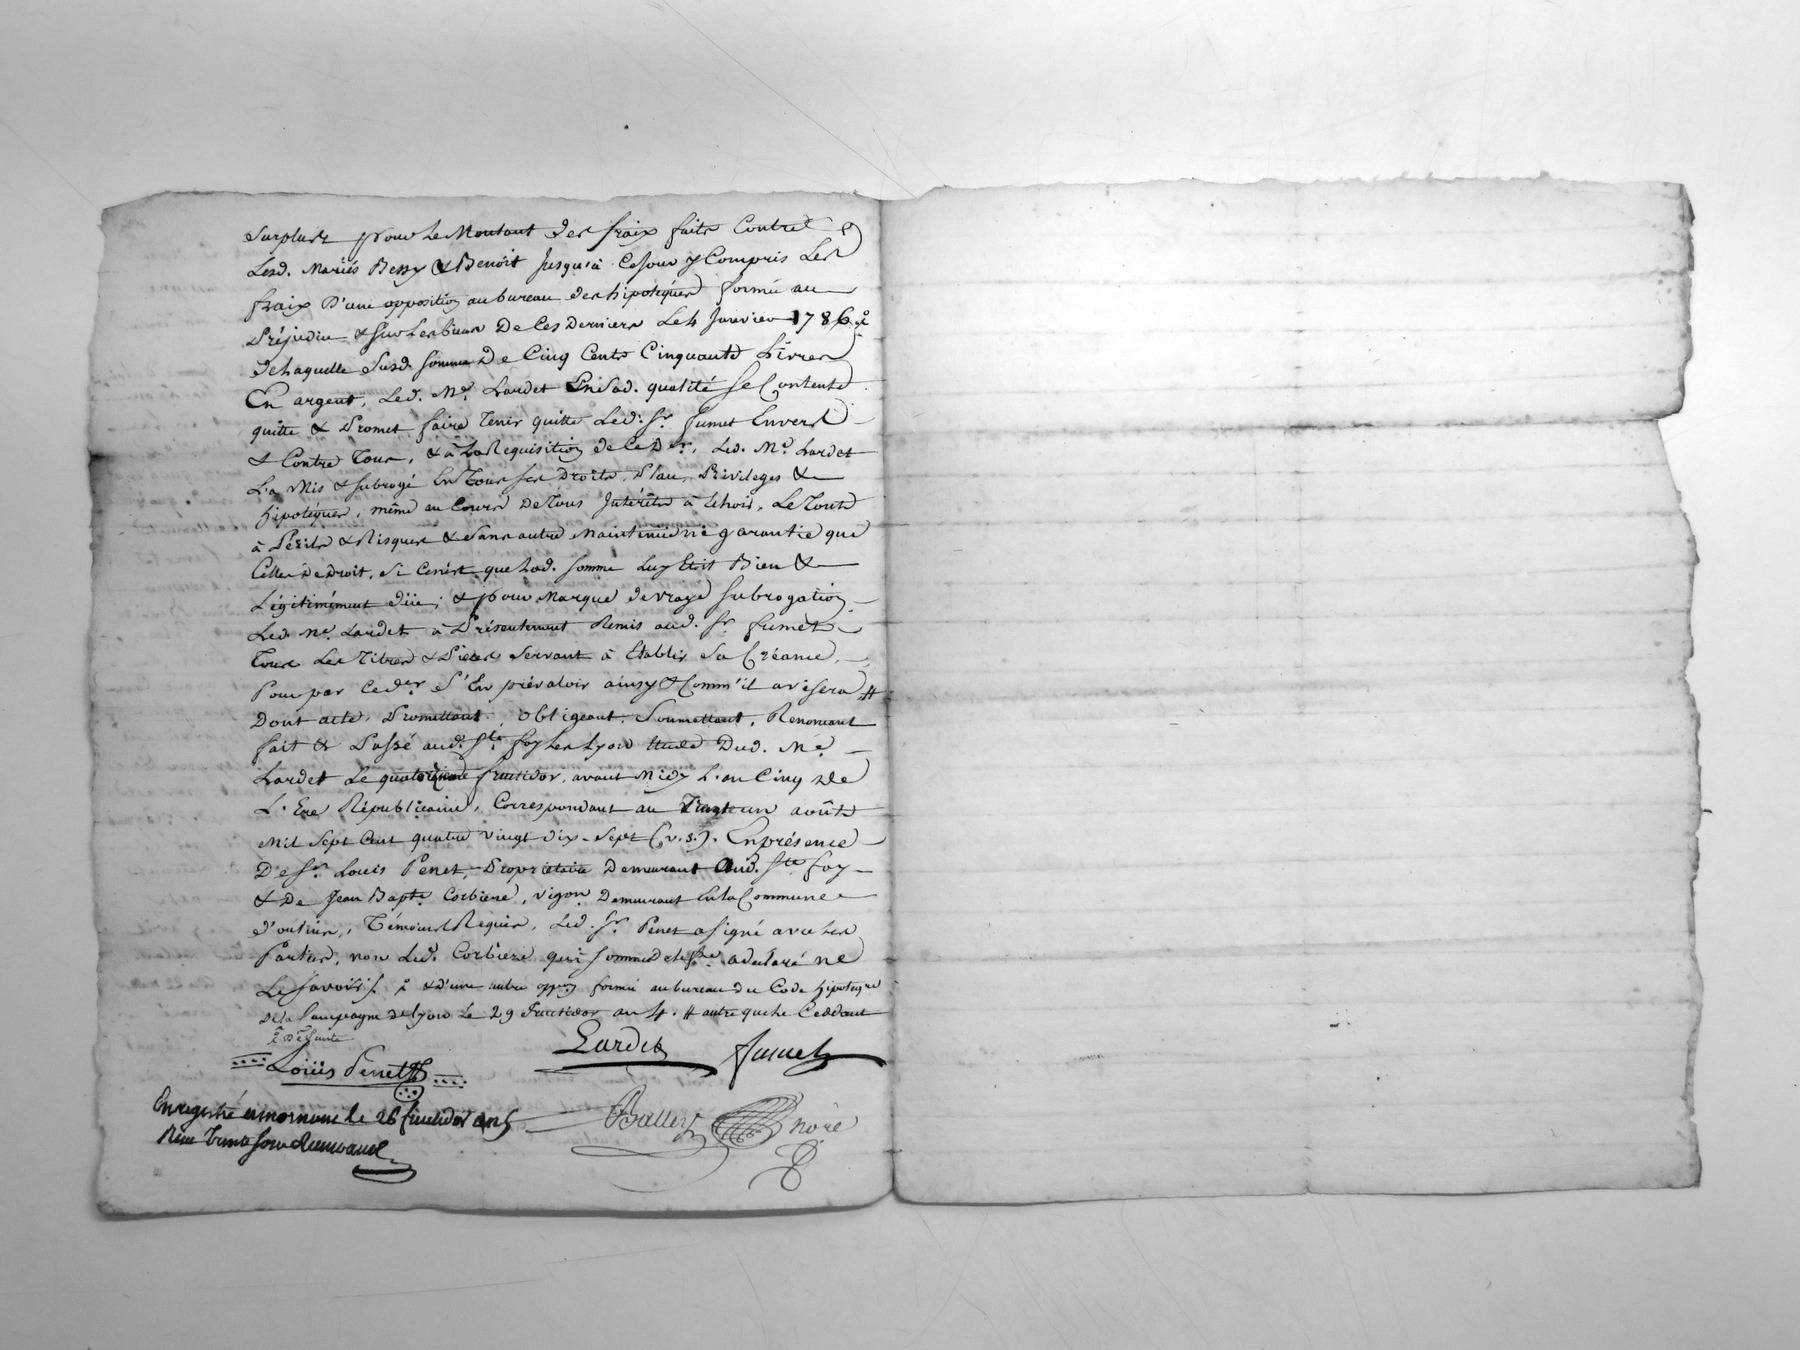 Surplus pour le Montant des fraix faits Contre
Lesd. Mariés Bessy & Benoît Jusqu'à Cejour y Compris Les
fraix D'une opposition au bureau des hipotéques formée au
Préjudice & sur les biens De Ces Derniers Le 4 Janvier 1786 &
de Laquelle Susd. somme De Cinq Cents Cinquante Livres
En argent, Led. Me. Lardet En Sad. qualité se Contente
quitte & Promet faire Tenir quitte Led. Sr. fumet Envers
& Contre Tous, & à La Requisition de Ce Der. Led. Me. Lardet
L'a Mis & subrogé En Tous ses Droits, Place, Privileges &
hipotéques, même au Cours De Tous Intérêts à Echoir, Le Tout
à Périls & Risques & Sans autre Maintenüe ni garantie que
Celle De Droit, Si Ce n'est que Lad. somme Luy Etoit Bien &
Légitimément düe; & pour Marque de vraye subrogation
Led. Me. Lardet à Présentement Remis aud. Sr. fumet
Tous Les Titres & Pieces servant à Etablir Sa Créance,
Pour par Ce der S'En prévaloir ainsy & Comm'il avisera #
Dont acte, Promettant, obligeant, Soumettant, Renonçant
fait & Passé aud. Ste. foy Les Lyon Etude Dud. Me.
Lardet Le quatorze fructidor, avant Midy L'an Cinq de
L'Ere Républicaine, Correspondant au Trente un août
Mil Sept Cent quatre vingt dix-Sept (v.s.). En présence
De Sr. Louis Penet, Propriétaire Demeurant Aud. Ste. foy
& De Jean Bapte. Corbiere, vigon Demeurant En la Commune
d'oulins, Témoins Requis, Led. Sr. Penet a signé avec Les
Parties, non Led. Corbiere qui sommé de a déclaré ne
Le savoir & d'une autre oppon formée au bureau du Code hipoteqre
de la Campagne de Lyon Le 29 fructidor an 4. # autre que le Ceddant
Lardet fumet
Loüis Penet
Enregistré a mornant le 26 fructidor an 5
Balley